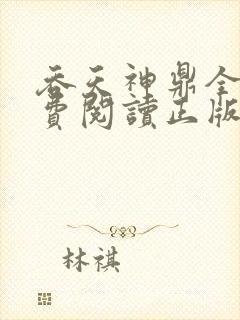 吞天神鼎全
費閱讀正版
林祺